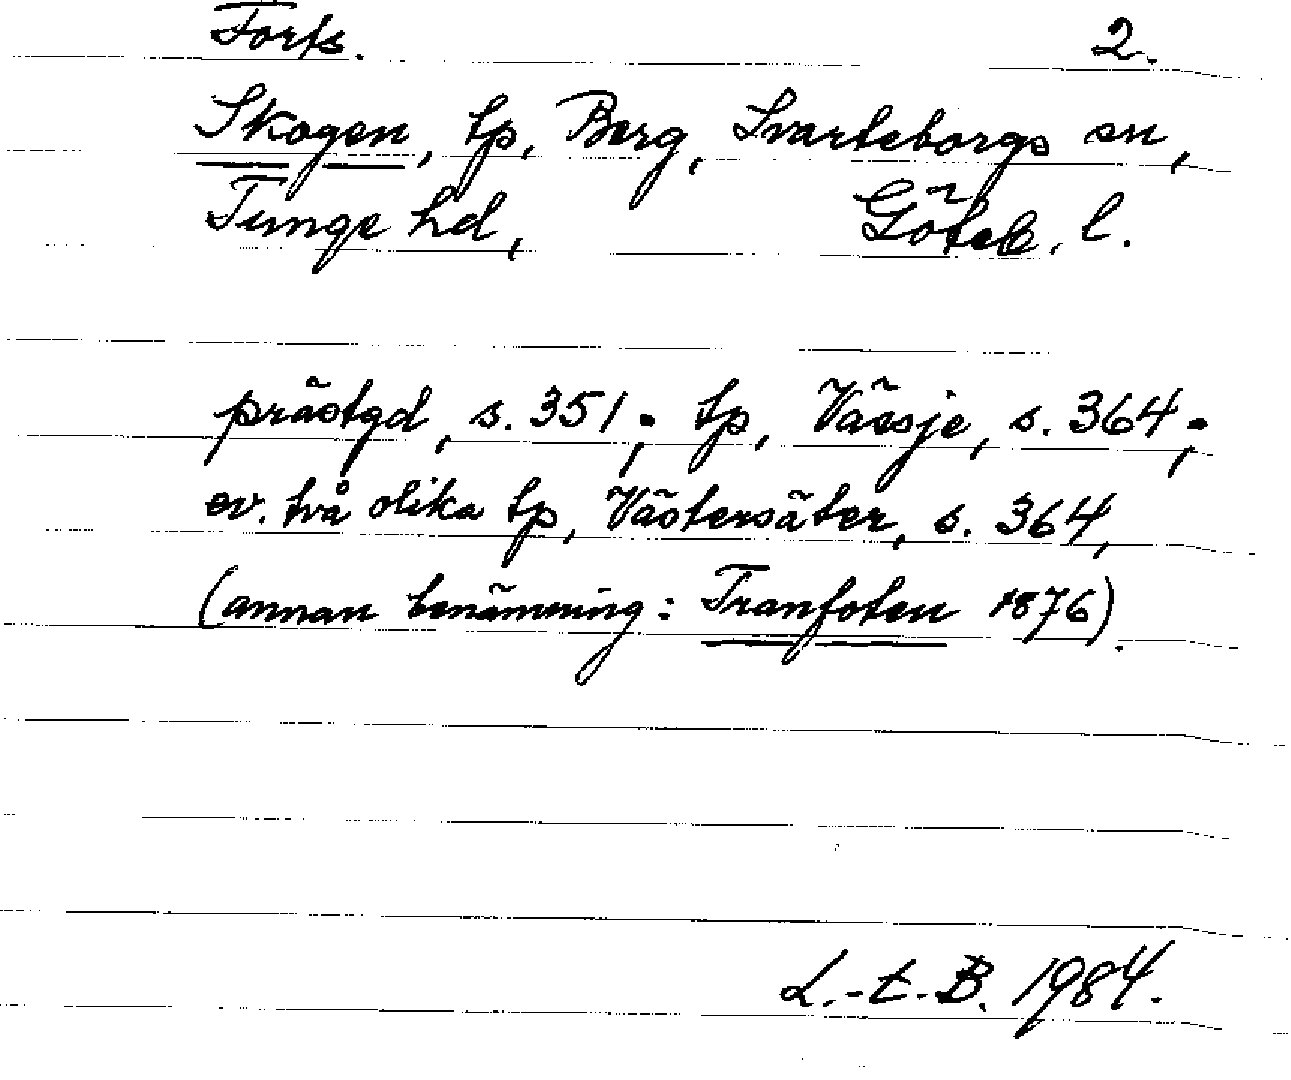 Forts. 2.
Skogen, tp, Berg, Svarteborgs sn,
Tunge hd, Göteb. l.
prästgd, s. 351; tp, Vässje, s. 364;
ev. två olika tp, Västersäter, s. 364,
(annan benämning: Tranfoten 1876).
L.-E.B. 1984.